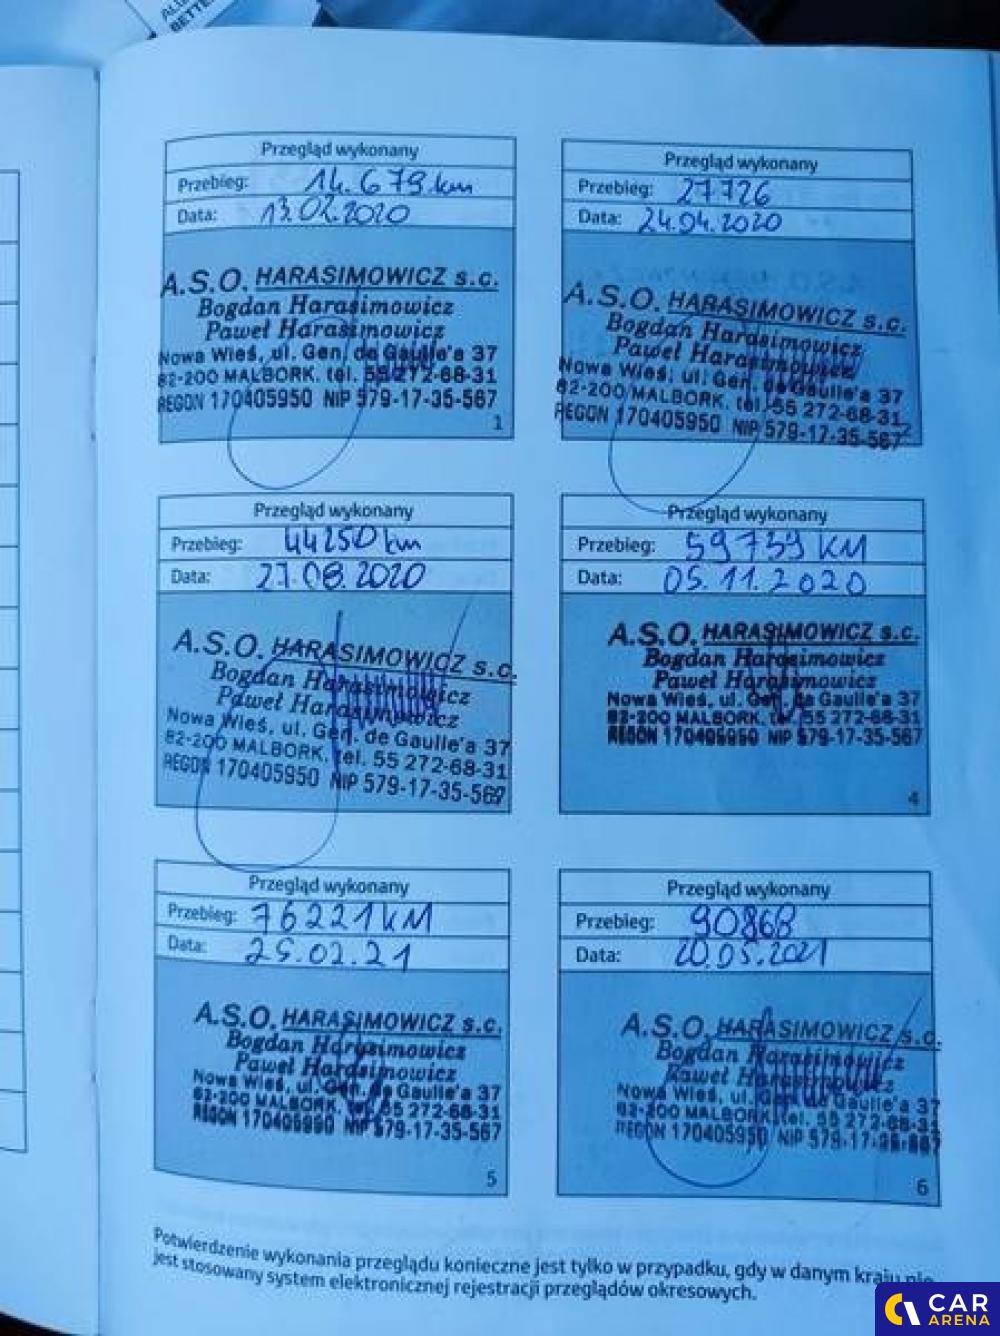 BETTE
Przegląd wykonany
Przebieg: 14.679 km
Data: 13.02.2020
A.S.O. HARASIMOWICZ s.c.
Bogdan Harasimowicz
Paweł Harasimowicz
Nowa Wieś, ul. Gen. de Gaulle'a 37
82-200 MALBORK. tel. 55 272-68-31
REGON 170405950 NIP 579-17-35-567
1
Przegląd wykonany
Przebieg: 27726
Data: 24.04.2020
A.S.O. HARASIMOWICZ s.c.
Bogdan Harasimowicz
Paweł Harasimowicz
Nowa Wieś, ul. Gen. de Gaulle'a 37
82-200 MALBORK. tel. 55 272-68-31
REGON 170405950 NIP 579-17-35-567
2
Przegląd wykonany
Przebieg: 44250 km
Data: 27.08.2020
A.S.O. HARASIMOWICZ s.c.
Bogdan Harasimowicz
Paweł Harasimowicz
Nowa Wieś, ul. Gen. de Gaulle'a 37
82-200 MALBORK. tel. 55 272-68-31
REGON 170405950 NIP 579-17-35-567
Przegląd wykonany
Przebieg: 59759 KM
Data: 05.11.2020
A.S.O. HARASIMOWICZ s.c.
Bogdan Harasimowicz
Paweł Harasimowicz
Nowa Wieś, ul. Gen. de Gaulle'a 37
82-200 MALBORK. tel. 55 272-68-31
REGON 170405950 NIP 579-17-35-567
4
Przegląd wykonany
Przebieg: 76221 KM
Data: 25.02.21
A.S.O. HARASIMOWICZ s.c.
Bogdan Harasimowicz
Paweł Harasimowicz
Nowa Wieś, ul. Gen. de Gaulle'a 37
82-200 MALBORK. tel. 55 272-68-31
REGON 170405950 NIP 579-17-35-567
5
Przegląd wykonany
Przebieg: 90868
Data: 20.05.2021
A.S.O. HARASIMOWICZ s.c.
Bogdan Harasimowicz
Paweł Harasimowicz
Nowa Wieś, ul. Gen. de Gaulle'a 37
82-200 MALBORK. tel. 55 272-68-31
REGON 170405950 NIP 579-17-35-567
6
Potwierdzenie wykonania przeglądu konieczne jest tylko w przypadku, gdy w danym kraju nie
jest stosowany system elektronicznej rejestracji przeglądów okresowych.
CAR
ARENA